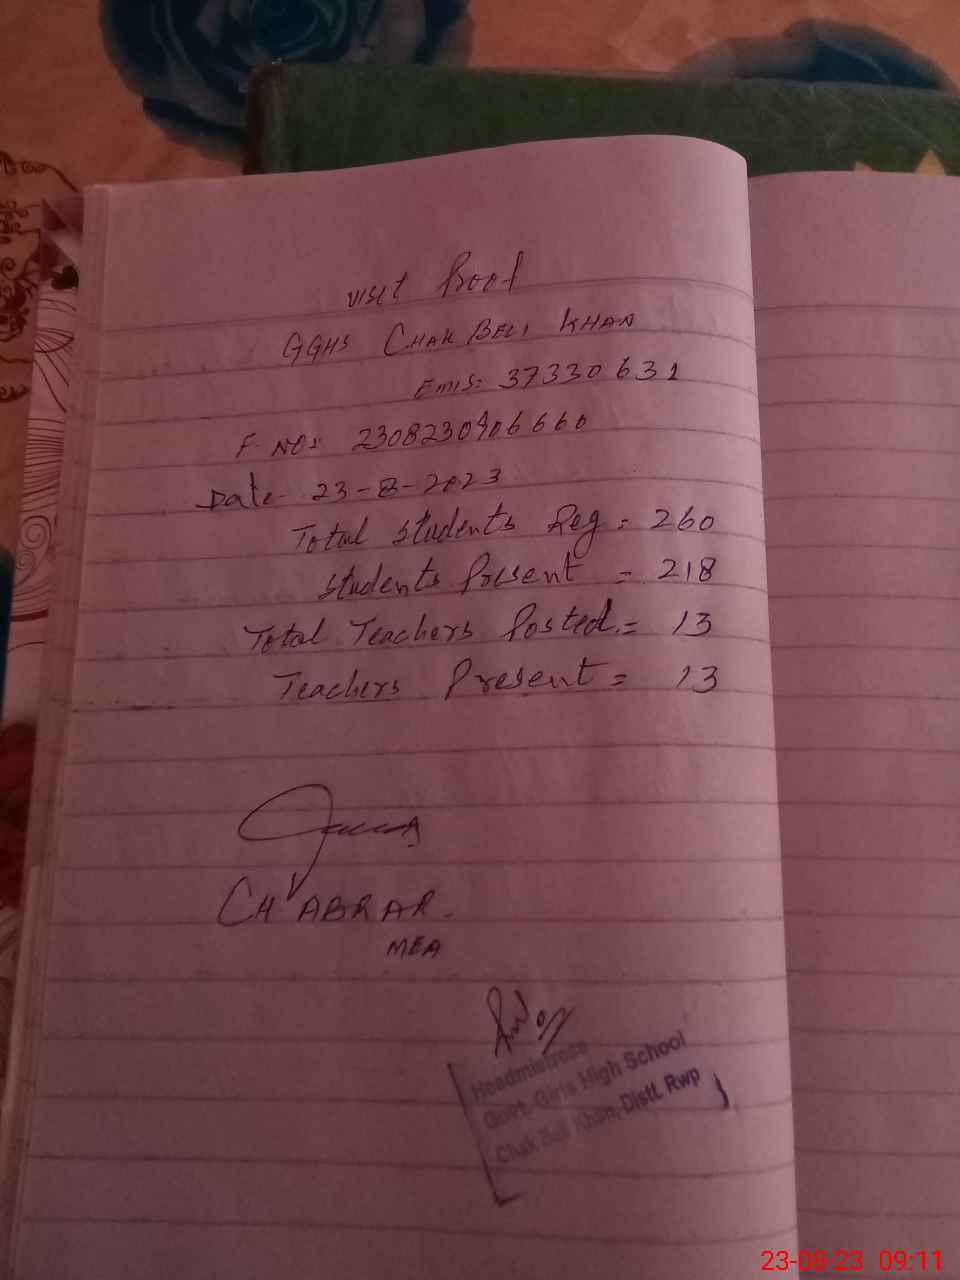 Visit Proof
GGHS CHAK BELI KHAN
EMIS: 37330631
F. NO: 2308230906660
Date- 23-8-2023
Total Students Reg = 260
Students Present = 218
Total Teachers Posted = 13
Teachers Present = 13
CH ABRAR
MEA
Headmistress
Govt. Girls High School
Chak Beli Khan, Distt. Rwp
23-08-23 09:11